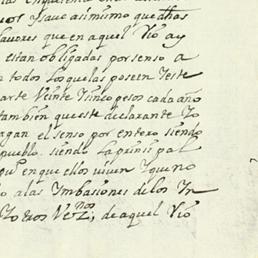 y save asimismo que dhas
laveres que en aquel Rio ay
estan obligadas por senso a
todos los que las poseen Jeste
arte Veinte Isinco pesos cada año
tambien que este declarante Io
pagan el senso por entero siendo
pueblo siendo la prinsipal
en que ellos viven Ique no
o a las Imbasiones de los In
Io tros Vezºs, de aquel Rio